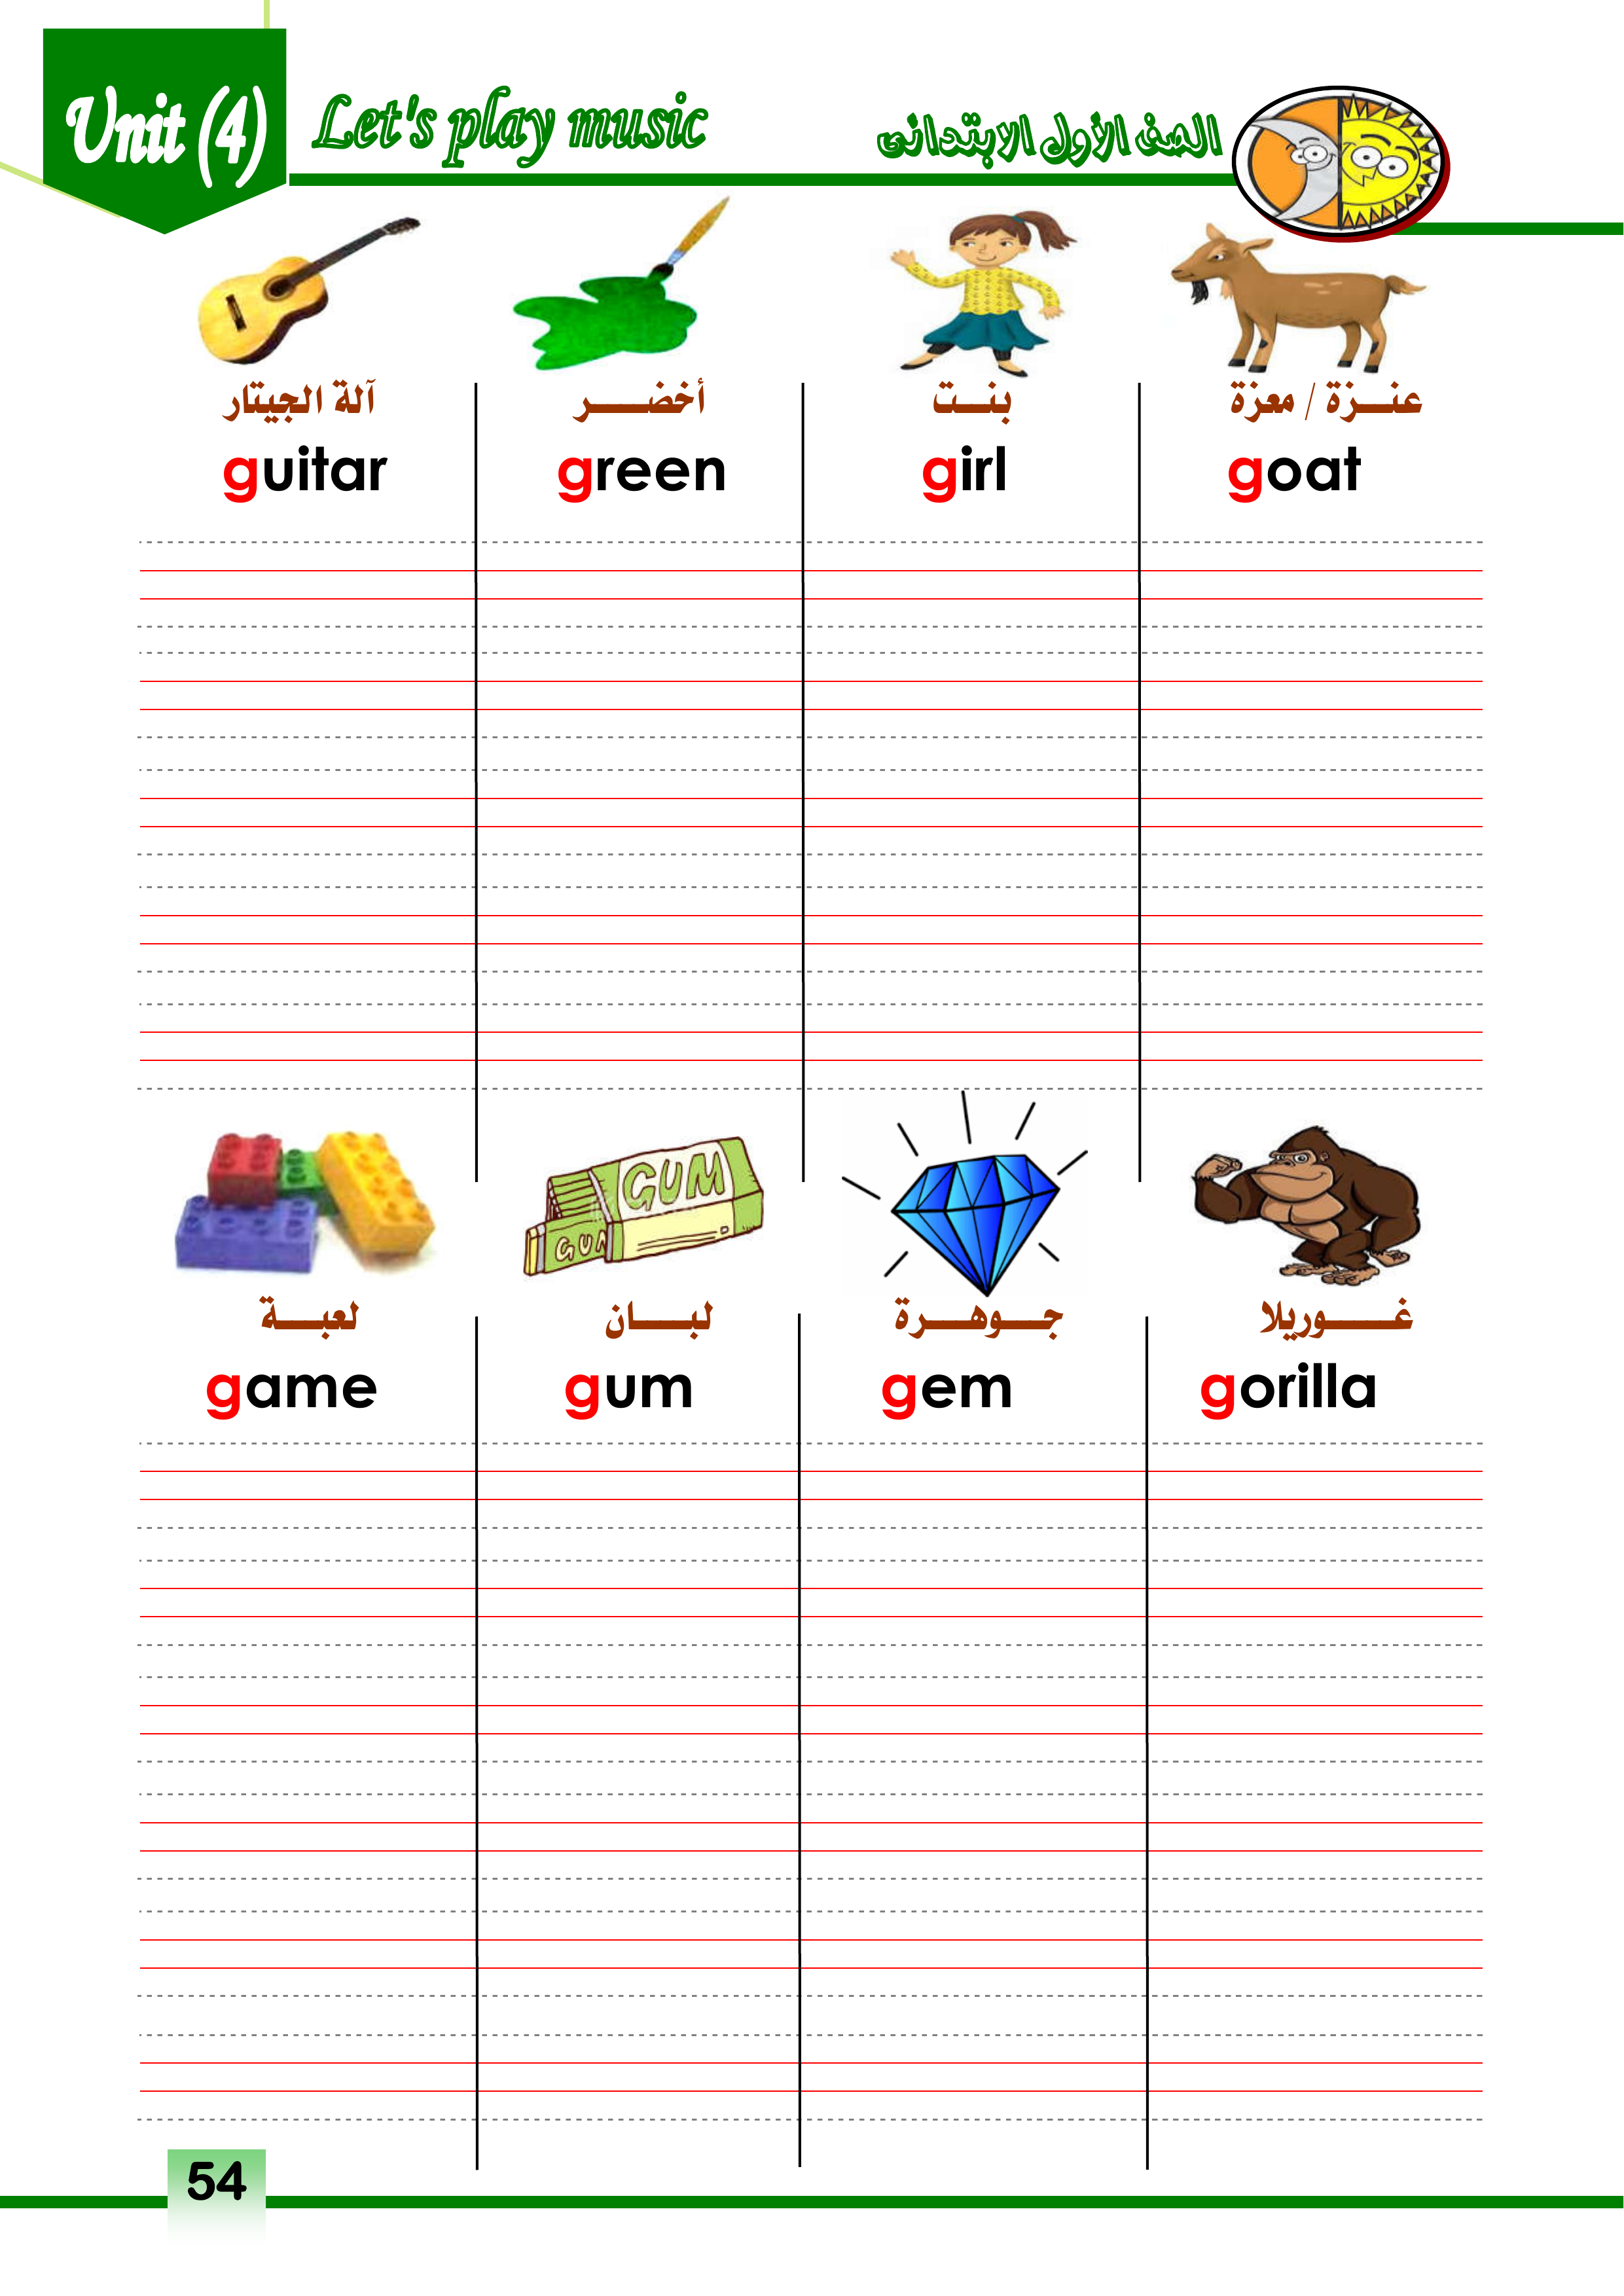 Unit (4) Let's play music الصف الأول الابتدائى
آلة الجيتار أخضر بنت عنزة / معزة
guitar green girl goat
GUM
GUM
لعبة لبان جوهرة غوريلا
game gum gem gorilla
54